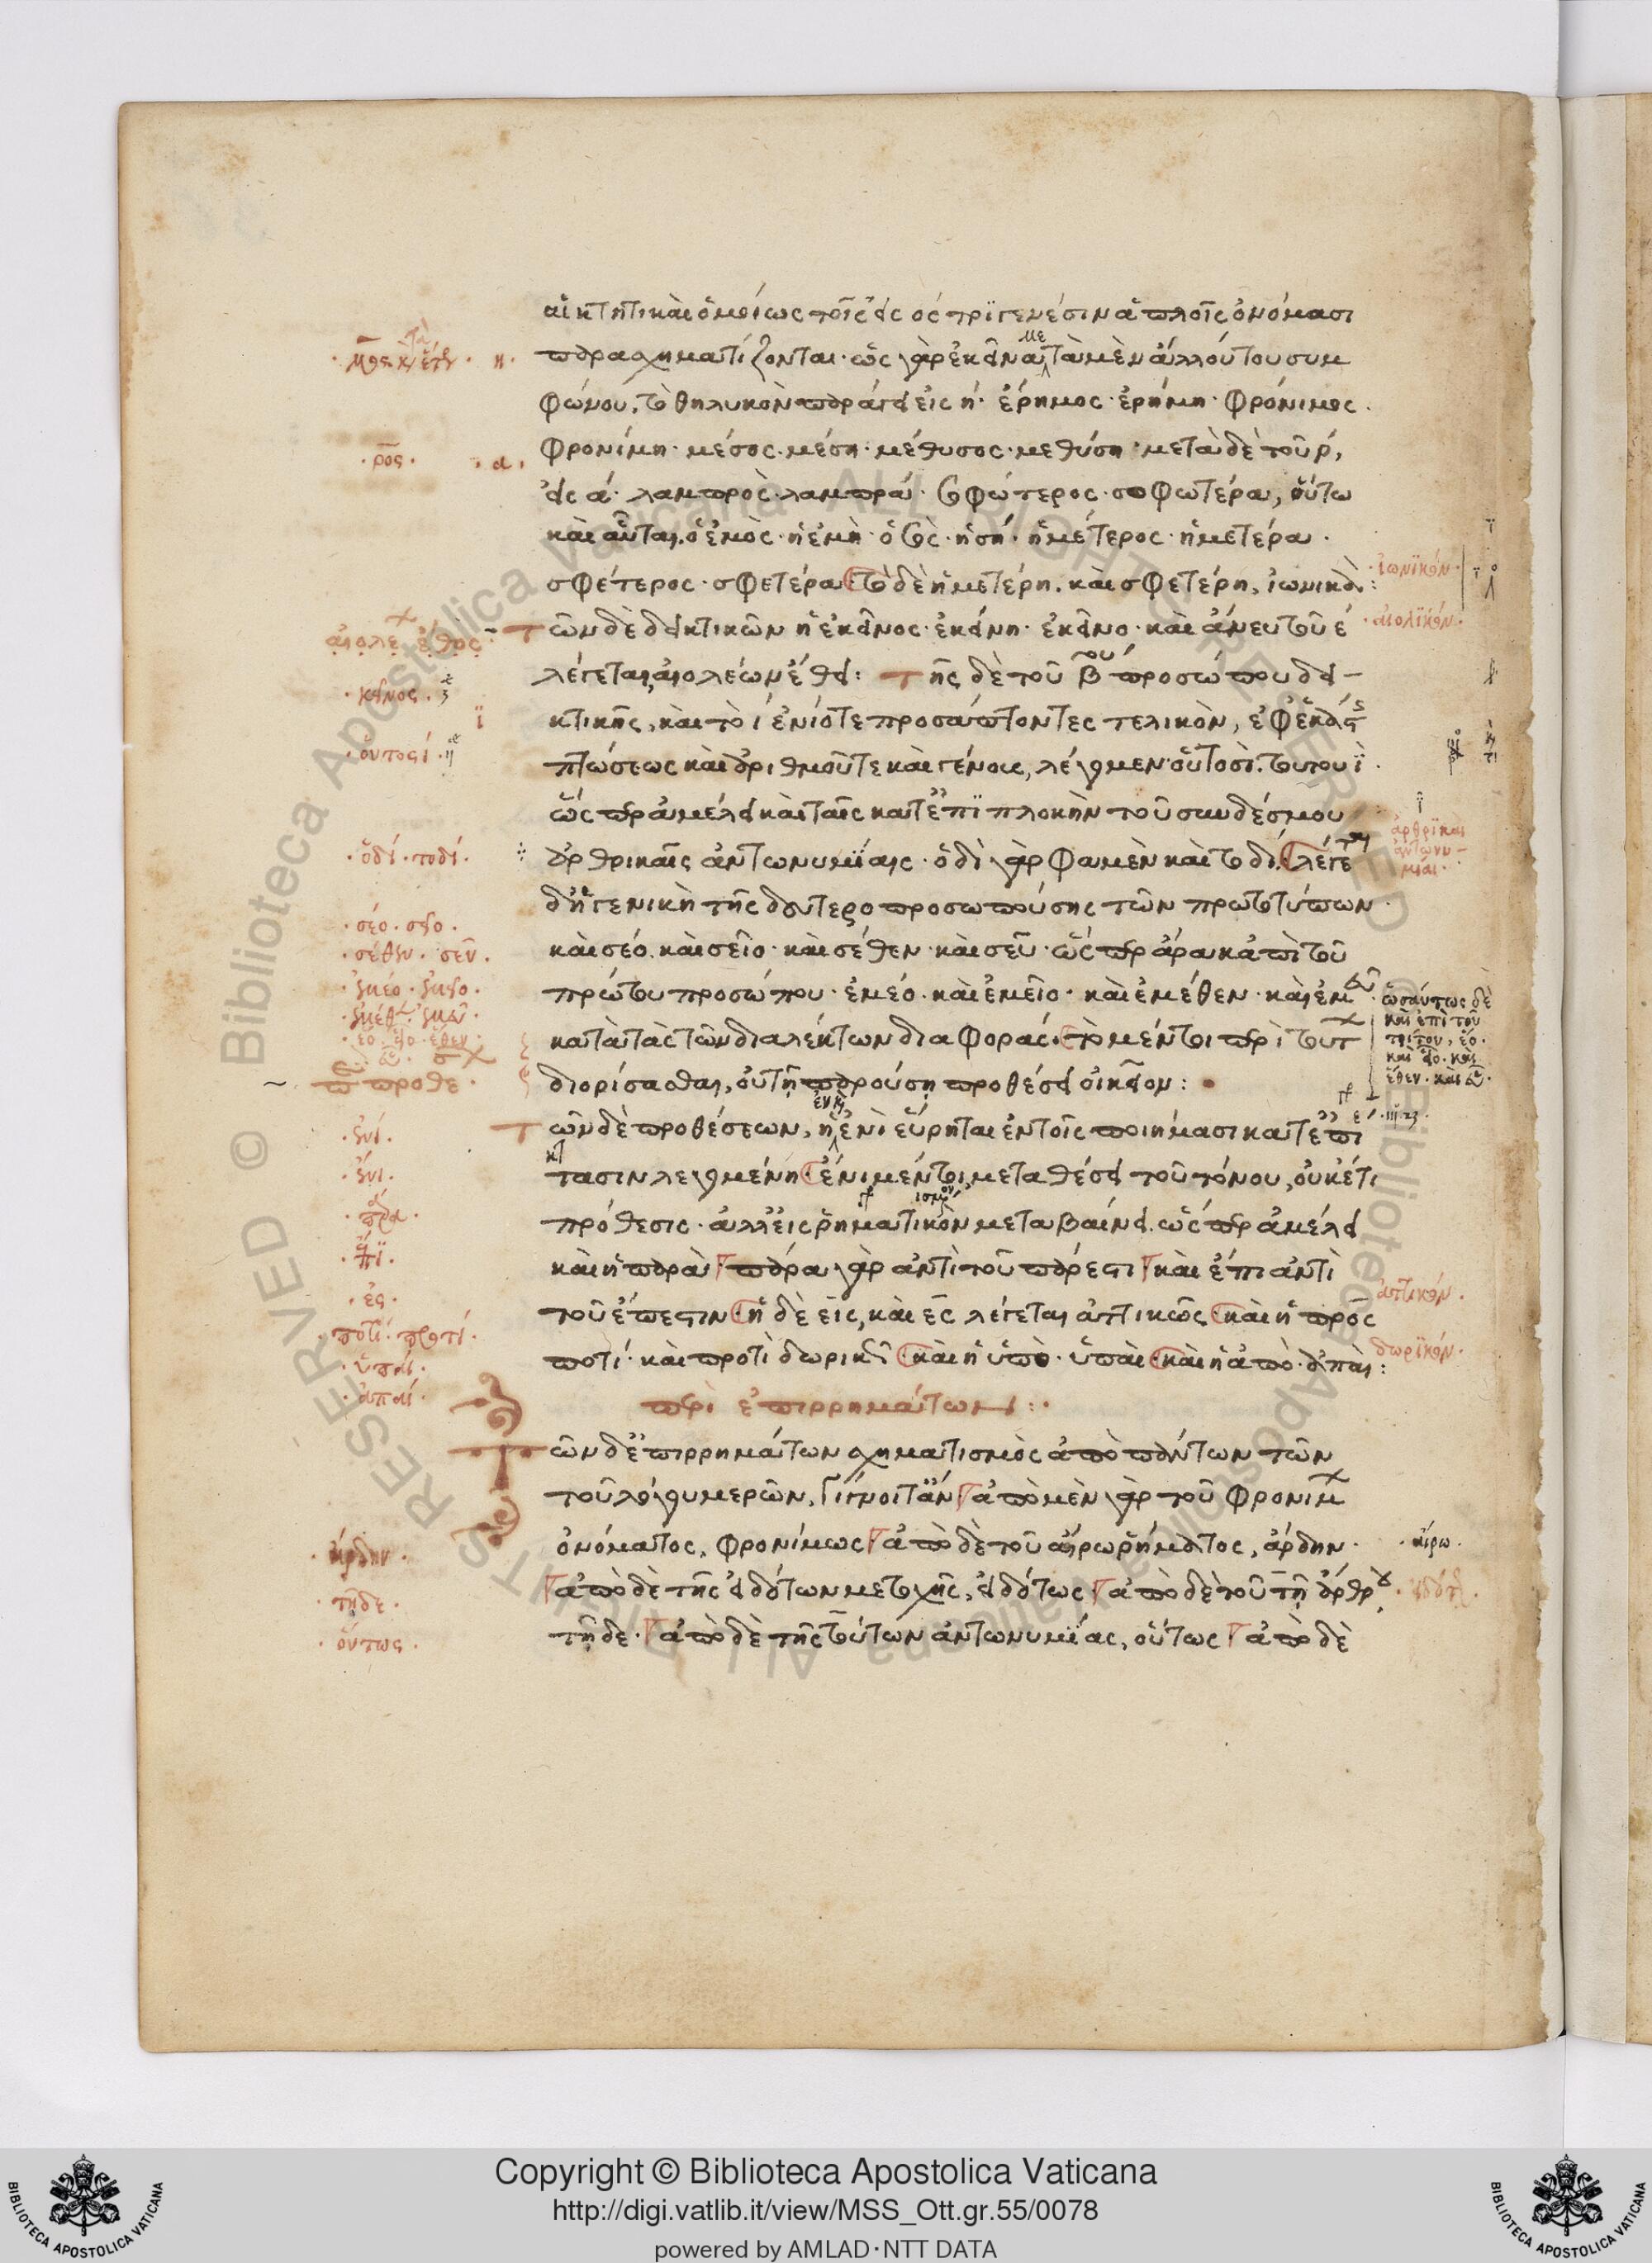 αἱ κτητικαὶ ὁμοίως τοῖς εἰς ος τριγενέσιν ἁπλοῖς ὀνόμασι
παρασχηματίζονται· ὡς γὰρ ἐκεῖνα μετὰ μὲν ἄλλου του συμ
φώνου, τὸ θηλυκὸν παράγει εἰς η· ἔρημος· ἐρήμη· φρόνιμος·
φρονίμη· μέσος· μέση· μέθυσος· μεθύση· μετὰ δὲ τοῦ ρ,
εἰς α· λαμπρὸς· λαμπρά· σοφώτερος· σοφωτέρα, οὕτω
καὶ αὗται. ὁ ἐμὸς· ἡ ἐμὴ· ὁ σὸς· ἡ σή· ἡμέτερος· ἡμετέρα·
σφέτερος· σφετέρα τὸ δὲ ἡμετέρη. καὶ σφετέρη, ἰωνικὰ:
ἰωνϊκόν·
Τῶν δὲ δεικτικῶν ἡ ἐκεῖνος· ἐκείνη· ἐκεῖνο· καὶ ἄνευ τοῦ ε
αἰολϊκόν·
λέγεται, αἰολέων ἔθει: Τῆς δὲ τοῦ β̅ου προσώπου δει-
· κεῖνος·
κτικῆς, καὶ τὸ ι ἐνίοτε προσάπτοντες τελικὸν, ἐφ' ἑκάστης
· οὑτοσί·
πτώσεως καὶ ἀριθμοῦ τε καὶ γένους, λέγομεν οὑτοσὶ. τουτουΐ·
ὥσπερ ἀμέλει καὶ ταῖς κατ' ἐπιπλοκὴν τοῦ συνδέσμου
ἀρθρϊκαὶ
ἀντωνυ-
μίαι·
· ὁδί· τοδί·
ἀρθρικαῖς ἀντωνυμίαις· ὁδὶ γὰρ φαμὲν καὶ τοδί. λέγεται
δ' ἡ γενικὴ τῆς δευτεροπροσωπούσης τῶν πρωτοτύπων·
· σέο· σεῖο·
· σέθεν· σεῦ·
καὶ σέο. καὶ σεῖο· καὶ σέθεν· καὶ σεῦ· ὥσπερ ἄρα κἀπὶ τοῦ
πρώτου προσώπου· ἐμέο· καὶ ἐμεῖο· καὶ ἐμέθεν· καὶ ἐμεῦ
ὡσαύτως δὲ
καὶ ἐπὶ τοῦ
τρίτου, ἕο·
καὶ εἷο· καὶ
ἕθεν· καὶ εὗ·
κατὰ τὰς τῶν διαλέκτων διαφοράς. τὸ μέντοι περὶ τούτων
διορίσασθαι, οὐ τῇ παρούσῃ προθέσει οἰκεῖον:
Τῶν δὲ προθέσεων, ἡ ἐν καὶ ἐνὶ εὕρηται ἐν τοῖς ποιήμασι κατ' ἐπέ
· ἐνί·
· ἔνι·
κτασιν λεγομένη ἔνι μέντοι μεταθέσει τοῦ τόνου, οὐκέτι
πρόθεσις· ἀλλ' εἰς ῥηματικὸν μεταβαίνει. ὥσπερ ἀμέλει
καὶ ἡ παρὰ πάρα γὰρ ἀντὶ τοῦ πάρεστι καὶ ἔπι ἀντὶ
ἀττικόν·
· ἐς·
τοῦ ἔπεστιν ἡ δὲ εἰς, καὶ ἐς λέγεται ἀττικῶς καὶ ἡ πρὸς
· ποτί· προτί·
· ὑπαί·
· ἀπαί·
ποτί· καὶ προτὶ δωρικῶς καὶ ἡ ὑπὸ· ὑπαὶ καὶ ἡ ἀπὸ· ἀπαὶ:
δωρϊκόν·
περὶ ἐπιρρημάτων:·
Τῶν δ' ἐπιρρημάτων σχηματισμὸς ἀπὸ πάντων τῶν
τοῦ λόγου μερῶν, γίγνοιτ' ἄν ἀπὸ μὲν γὰρ τοῦ φρονίμου
ὀνόματος, φρονίμως ἀπὸ δὲ τοῦ αἴρω ῥήματος, ἄρδην·
· ἄρδην·
· αἴρω·
ἀπὸ δὲ τῆς εἰδότων μετοχῆς, εἰδότως ἀπὸ δὲ τοῦ τῇ ἄρθρου
· τῇδε·
τῇδε· ἀπὸ δὲ τῆς τούτων ἀντωνυμίας, οὕτως ἀπὸ δὲ
· οὕτως·
© Biblioteca Apostolica Vaticana ALL RIGHTS RESERVED
Copyright © Biblioteca Apostolica Vaticana
http://digi.vatlib.it/view/MSS_Ott.gr.55/0078
powered by AMLAD·NTT DATA
BIBLIOTECA APOSTOLICA VATICANA
BIBLIOTECA APOSTOLICA VATICANA